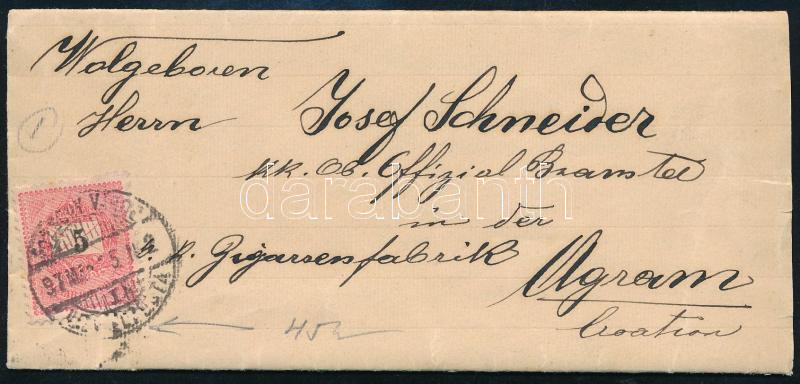 Wolgeboren
Herrn Josef Schneider
kk. Ob. Offizial Beamster
in der
k. k. Zigarrenfabrik
Agram
Croatien
1
5
darabanth